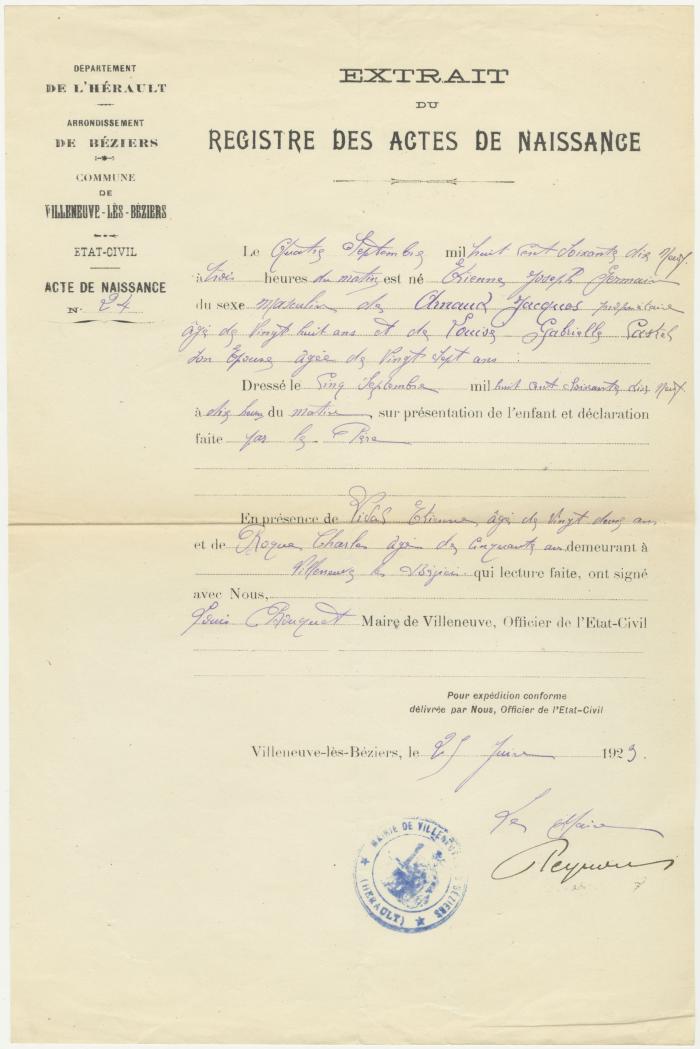 DÉPARTEMENT
DE L'HÉRAULT
ARRONDISSEMENT
DE BÉZIERS
COMMUNE
DE
VILLENEUVE-LÈS-BÉZIERS
ETAT-CIVIL
ACTE DE NAISSANCE
N° 24
EXTRAIT
DU
REGISTRE DES ACTES DE NAISSANCE
Le Quatre Septembre mil huit cent soixante dix neuf
à trois heures du matin est né Etienne Joseph Germain
du sexe masculin de Arnaud Jacques propriétaire
âgé de vingt huit ans et de Louise Gabrielle Castel
son Epouse âgée de vingt sept ans :
Dressé le Cinq Septembre mil huit cent soixante dix neuf
à dix heures du matin, sur présentation de l'enfant et déclaration
faite par le Père
En présence de Vidal Etienne, âgé de vingt deux ans
et de Roque Charles âgé de cinquante ans demeurant à
Villeneuve les Béziers qui lecture faite, ont signé
avec Nous,
Louis Bouquet Maire de Villeneuve, Officier de l'Etat-Civil
Pour expédition conforme
délivrée par Nous, Officier de l'Etat-Civil
Villeneuve-lès-Béziers, le 25 Juin 1923.
Le Maire
MAIRIE DE VILLENEUVE BÉZIERS
(HÉRAULT)